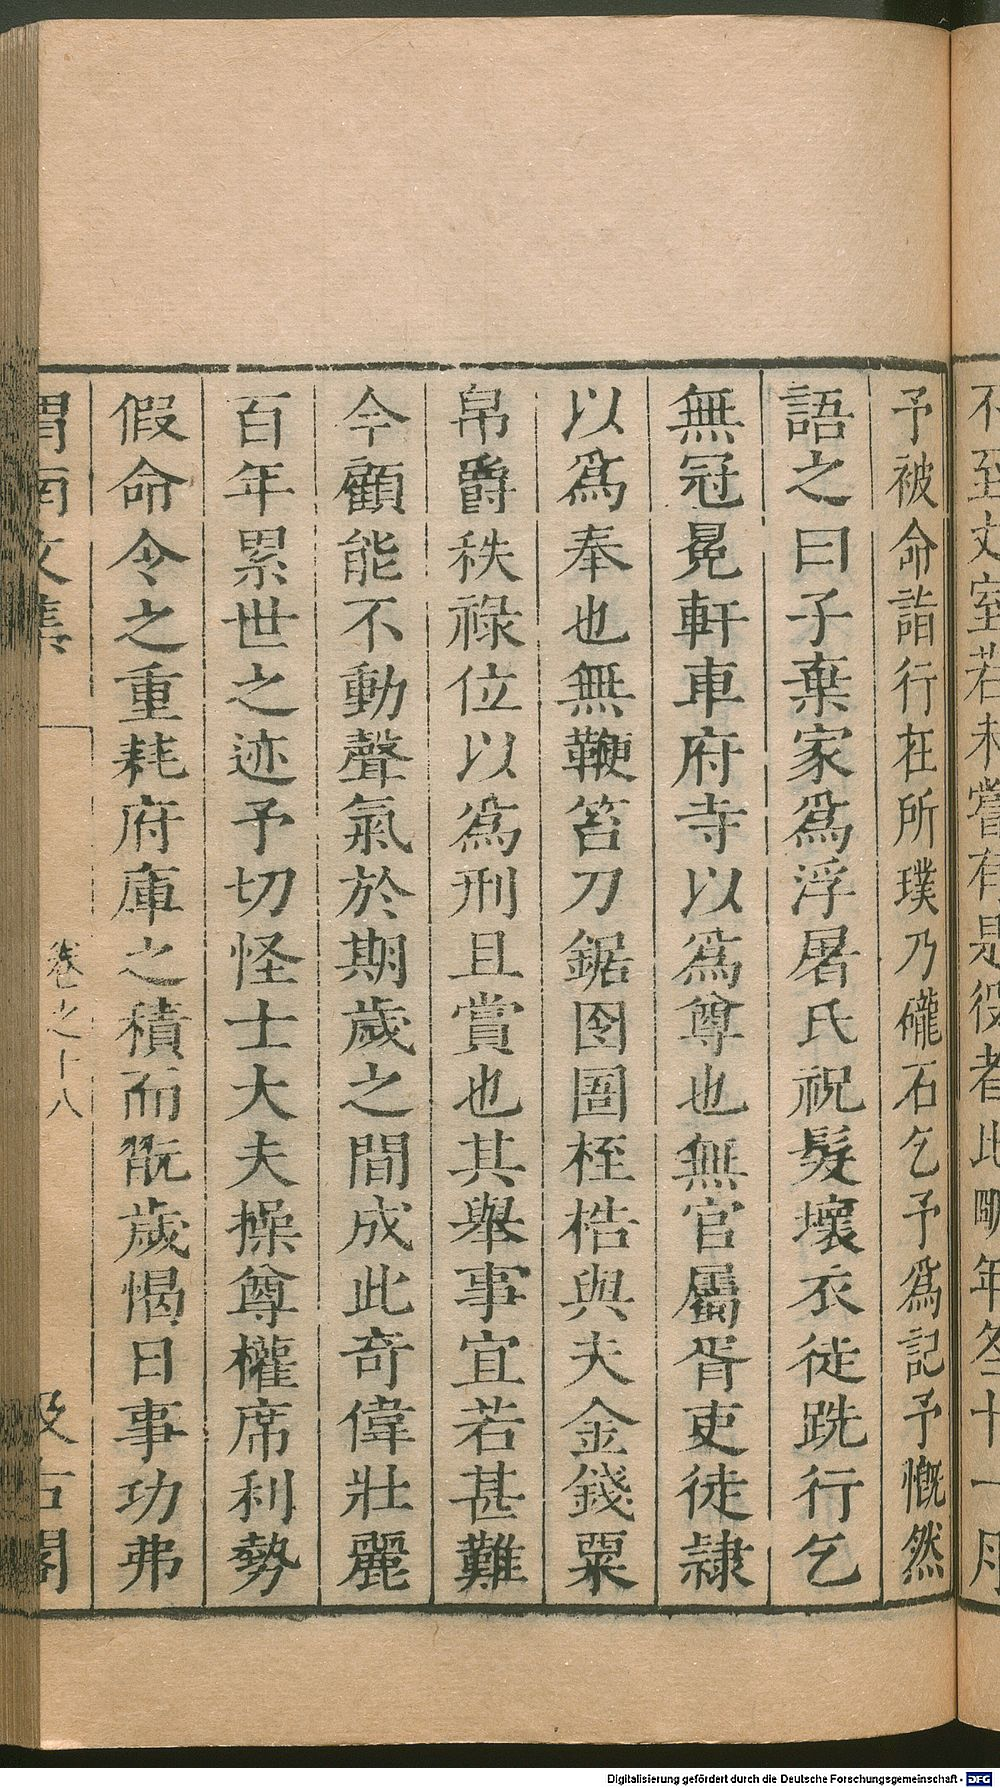 不至丈室若未嘗有是役者比明年冬十一月
予被命詣行在所璞乃礲石乞予爲記予慨然
語之曰子棄家爲浮屠氏祝髮壞衣徒跣行乞
無冠冕軒車府寺以爲尊也無官屬胥吏徒隷
以爲奉也無鞭笞刀鋸囹圄桎梏與夫金錢粟
帛爵秩祿位以爲刑且賞也其舉事宜若甚難
今顧能不動聲氣於期歲之間成此奇偉壯麗
百年累世之迹予切怪士大夫操尊權席利勢
假命令之重耗府庫之積而翫歲愒日事功弗
渭南文集 卷之十八 汲古閣
Digitalisierung gefördert durch die Deutsche Forschungsgemeinschaft - DFG